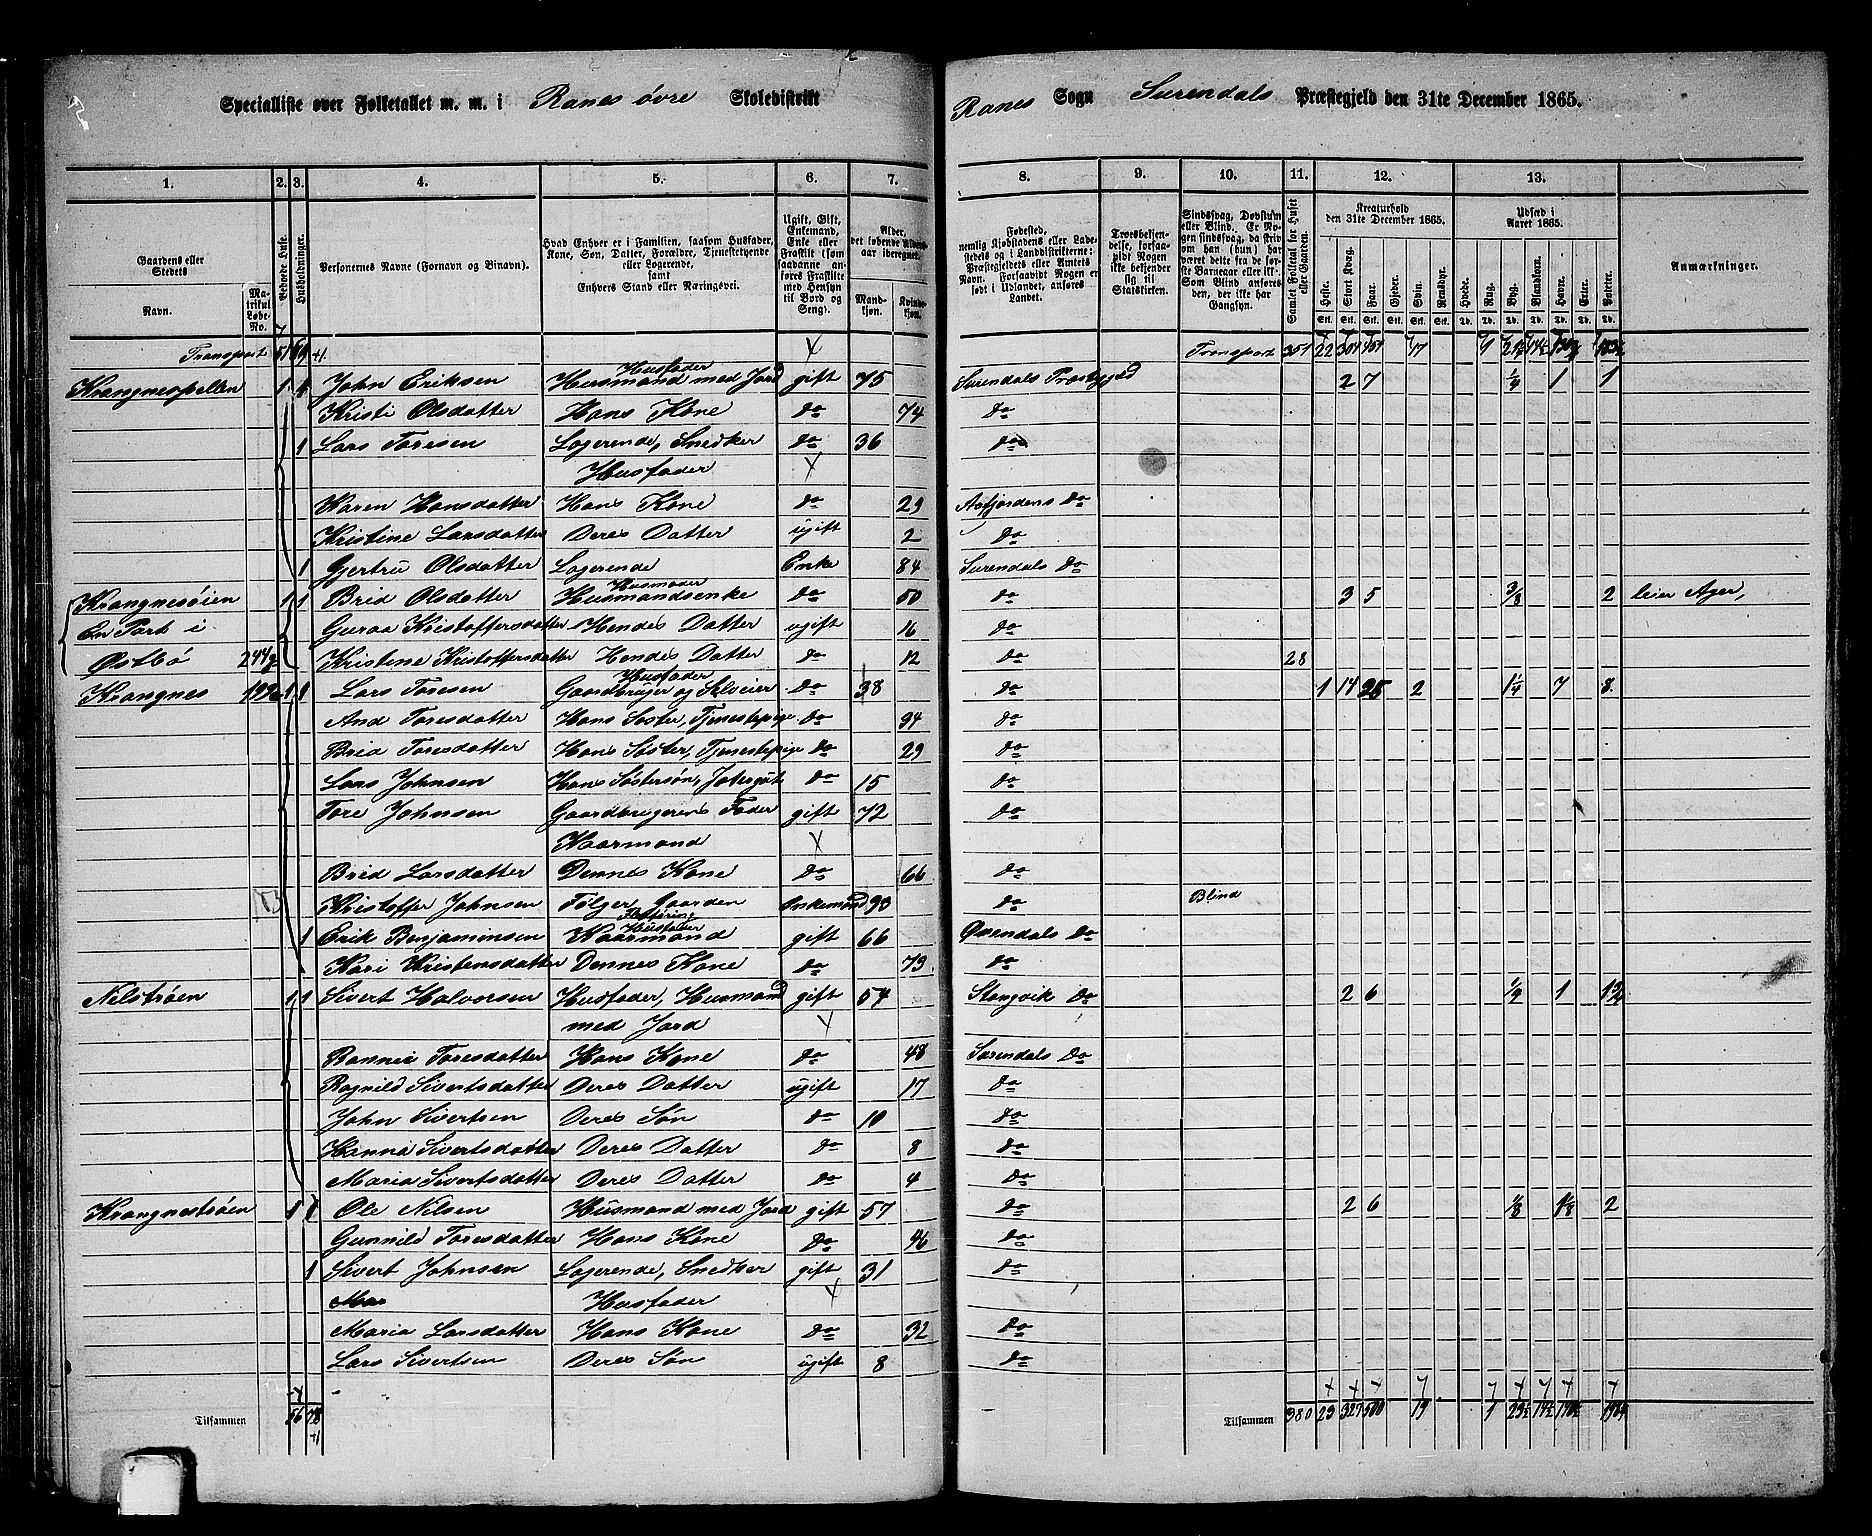 Specialliste over Folketallet m. m. i Ranes øvre Skoledistrikt
Ranes Sogn Surendals Præstegjeld den 31te December 1865.
1. 2. 3. 4. 5. 6. 7. 8. 9. 10. 11. 12. 13.
Gaardens eller Stedets
Navn. Matrikul Løbe-No.
Beboede Huse.
Husholdninger.
Personernes Navne (Fornavn og Binavn).
Hvad Enhver er i Familien, saasom Husfader, Kone, Søn, Datter, Forældre, Tjenestetyende eller Logerende, samt Enhvers Stand eller Næringsvei.
Ugift, Gift, Enkemand, Enke eller Fraskilt (som saadanne anføres Fraskilte med Hensyn til Bord og Seng).
Alder, det løbende Alders-aar iberegnet.
Mandkjøn. Kvindekjøn.
Fødested,
Troesbekjendelse, forsaavidt Nogen ikke bekjender sig til Statskirken.
Kreaturhold den 31te December 1865.
Udsæd i Aaret 1865.
Heste. Stort Kvæg. Faar. Gjeder. Svin. Rensdyr. Hvede. Rug. Byg. Blandkorn. Havre. Erter. Poteter.
Anmærkninger.
Transport Transport 351 22
Krangnespellen 1 1 John Eriksen Husfader Husmand med Jord gift 75 Surendals Præstegjeld 2 7 1/4 1 1
Kristi Olsdatter Hans Kone do 74 do
1 Lars Toresen Logerende, Snedker do 36 do
Husfader
Karen Hansdatter Hans Kone do 29 Aafjordens do
Kristine Larsdatter Deres Datter ugift 2 do
1 Gjertru Olsdatter Logerende Enke 84 Surendals do
Krangnesøien 1 1 Brid Olsdatter Husmoder Husmandsenke do 50 do 3 5 3/8 2 leier Ager,
En Part i Guraa Kristoffersdatter Hendes Datter ugift 16 do
Østbø 244 Kristine Kristoffersdatter Hendes Datter do 12 do 28
Krangnes 1 1 Lars Toresen Husfader Gaardbruger og Selveier do 38 do 1 14 25 2 1 1/4 7 8
And Toresdatter Hans Søster, Tjenestepige do 34 do
Brid Toresdatter Hans Søster, Tjenestepige do 29 do
Lars Johnsen Hans Søstersøn, do 15 do
Tore Johnsen Gaardbrugerens Fader gift 72 do
Kaarmand
Brid Larsdatter Dennes Kone do 66 do
Kristoffer Johnsen Følger Gaarden Enkemand 93 do Blind
1 Erik Benjaminsen Husfader Kaarmand gift 66 Øxendals do
Kari Kristensdatter Dennes Kone do 73 do
Nelstrøen 1 1 Sivert Halvorsen Husfader, Husmand gift 54 Stangvik do 2 6 1
med Jord
Toresdatter Hans Kone do 48 Surendals do
Ragnild Sivertsdatter Deres Datter ugift 17 do
John Sivertsen Deres Søn do 10 do
Hanna Sivertsdatter Deres Datter do 8 do
Maria Sivertsdatter Deres Datter do 4 do
Krangnestrøen 1 1 Ole Nilsen Husmand med Jord gift 57 do 2 6 1/8 2
Gunnild Toresdatter Hans Kone do 46 do
1 Sivert Johnsen Logerende, Snedker gift 31 do
Husfader
Maria Larsdatter Hans Kone do 32 do
Lars Sivertsen Deres Søn ugift 8 do
Tilsammen 56 78 Tilsammen 380 23 327 500 19